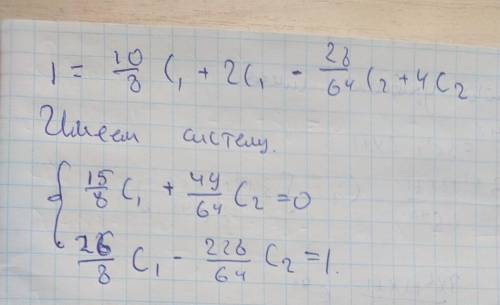 1 = 10/8 C₁ + 2C₁ - 28/64 C₂ + 4C₂
Имеем систему.
{ 15/8 C₁ + 49/64 C₂ = 0
26/8 C₁ - 228/64 C₂ = 1.